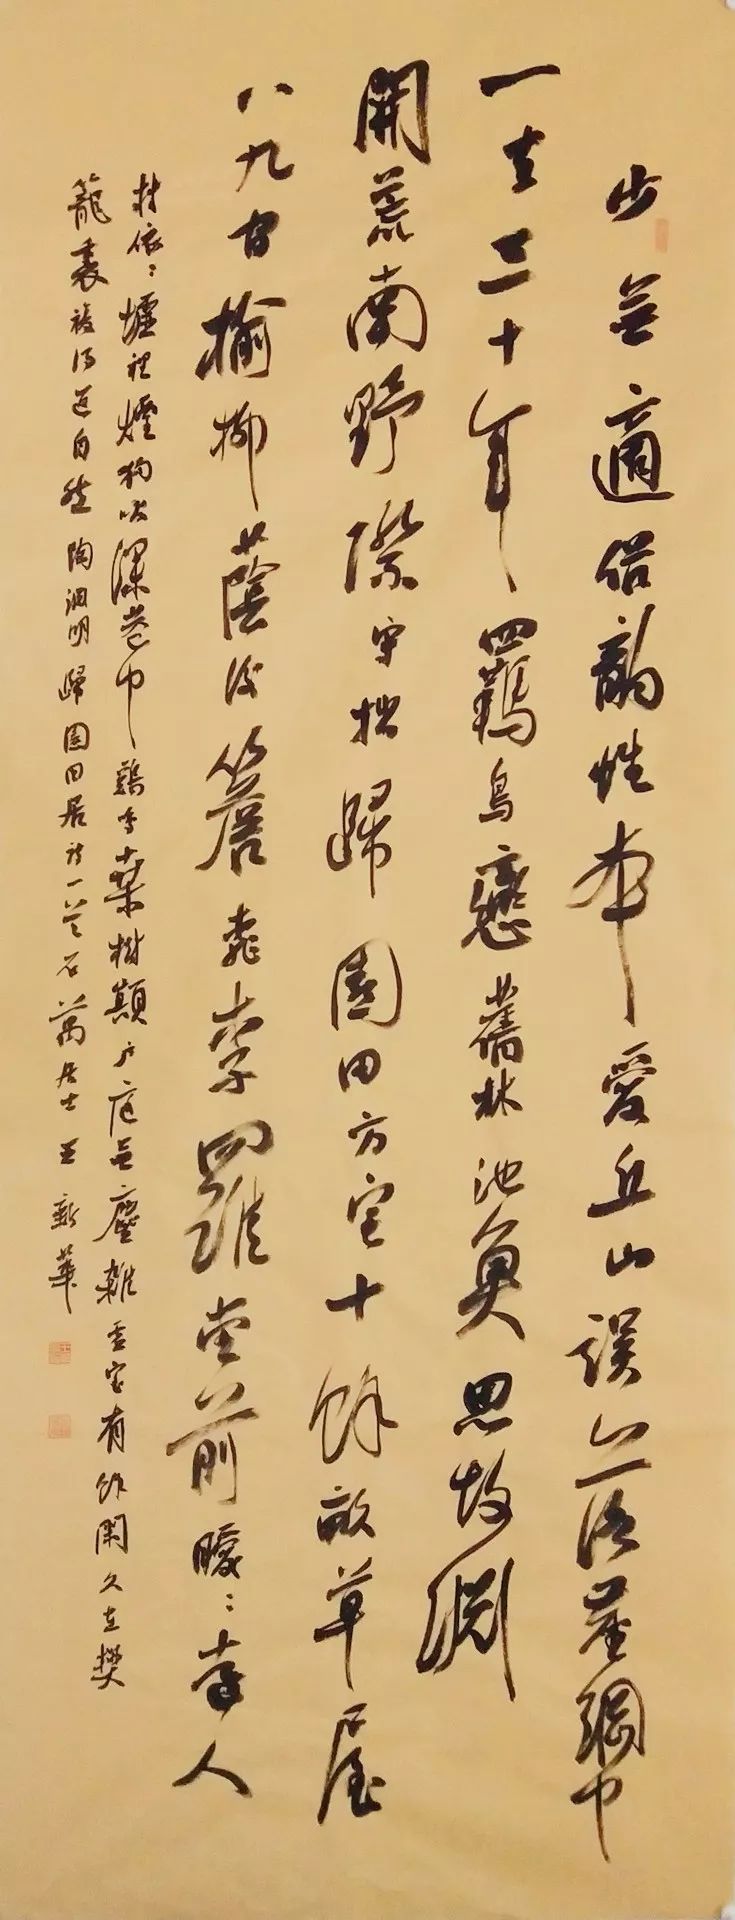 少無適俗韻性本愛丘山誤落塵網中
一去三十年羈鳥戀舊林池魚思故淵
開荒南野際守拙歸園田方宅十餘畝草屋
八九間榆柳蔭後簷桃李羅堂前曖〻遠人
村依〻墟裡煙狗吠深巷中鷄鳴桑樹顛户庭無塵雜虛室有餘閑久在樊
籠裏復得返自然陶淵明歸園田居詩一首石萬居士王新華